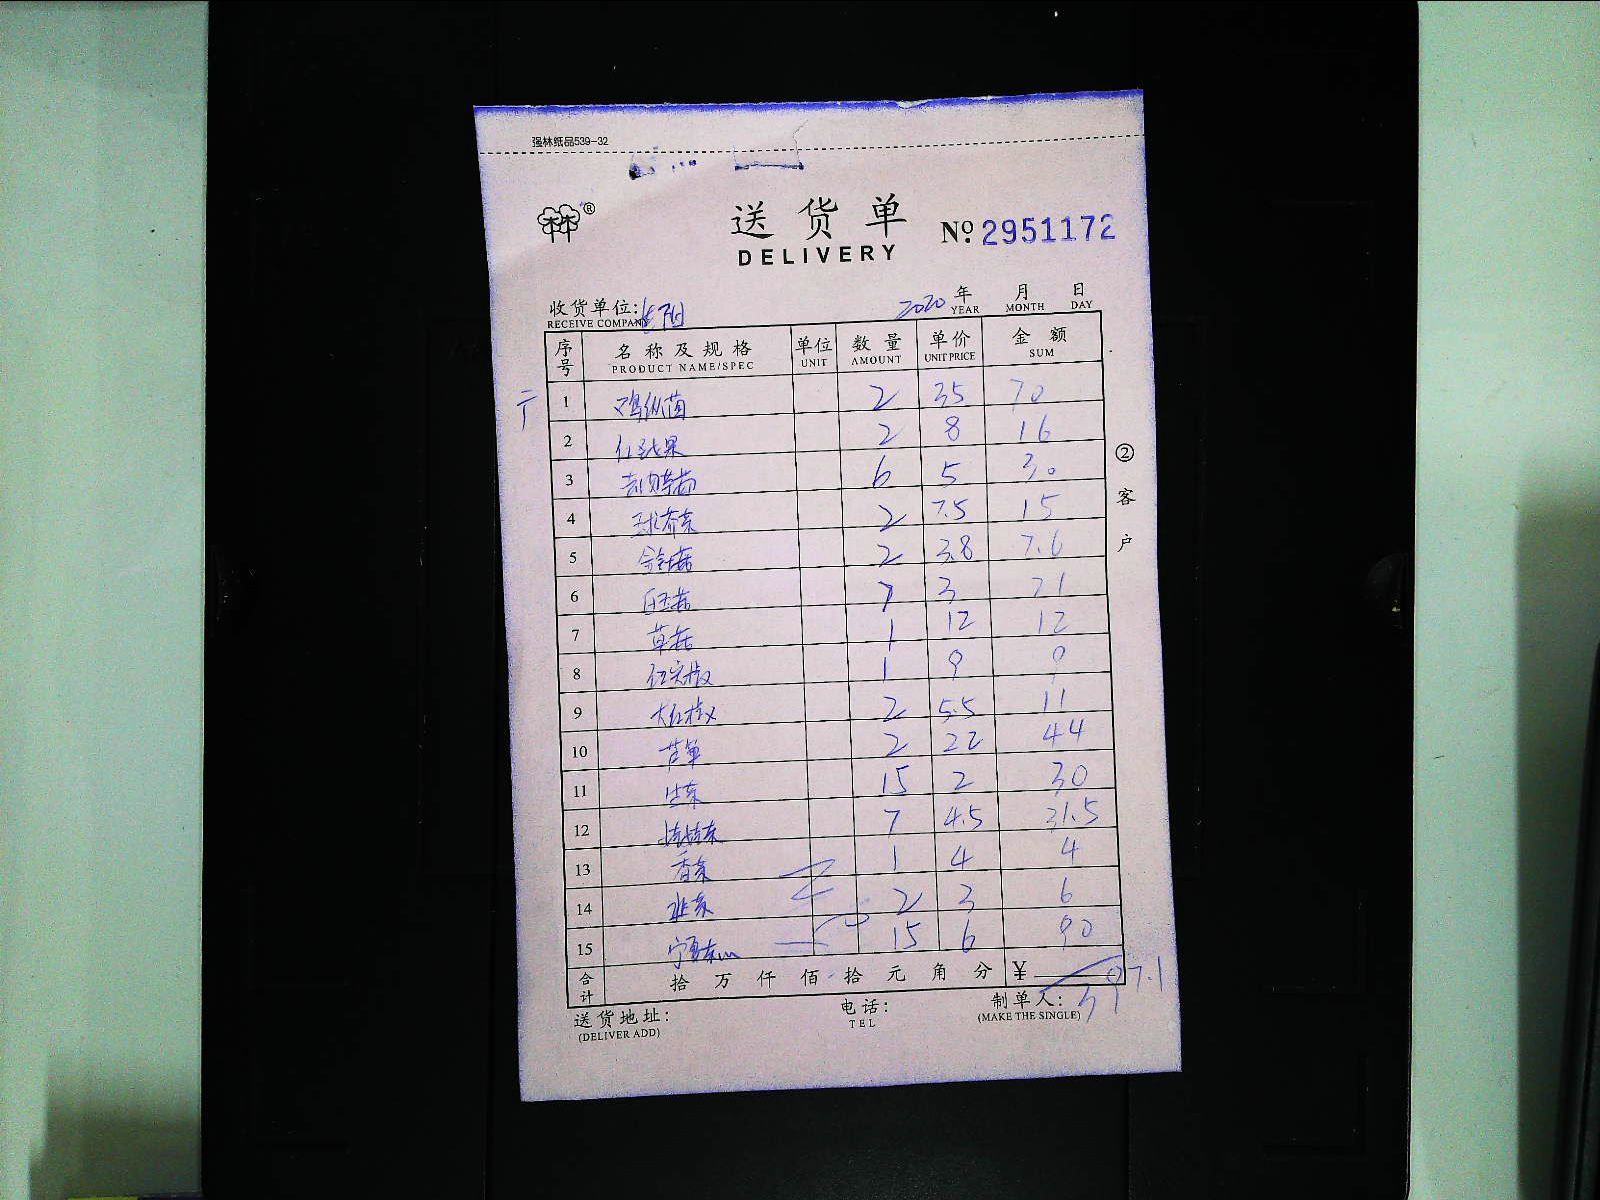 强林纸品539-32
林林®
送货单
DELIVERY
No. 2951172
收货单位:
RECEIVE COMPANY
2020 年 月 日
YEAR MONTH DAY
序号 名称及规格 单位 数量 单价 金额
PRODUCT NAME/SPEC UNIT AMOUNT UNIT PRICE SUM
1 鸡纵菌 2 35 70
2 2 8 16
3 6 5 30
4 球茶菜 2 7.5 15
5 金针菇 2 3.8 7.6
6 白玉菇 7 3 21
7 草菇 1 12 12
8 红尖椒 1 9 9
9 大红椒 2 5.5 11
10 2 22 44
11 生菜 15 2 30
12 娃娃菜 7 4.5 31.5
13 香菜 1 4 4
14 韭菜 2 3 6
15 宁夏菜心 15 6 90
合计 拾 万 仟 佰 拾 元 角 分 ¥ 397.1
送货地址: 电话: 制单人:
(DELIVER ADD) TEL (MAKE THE SINGLE)
②客户